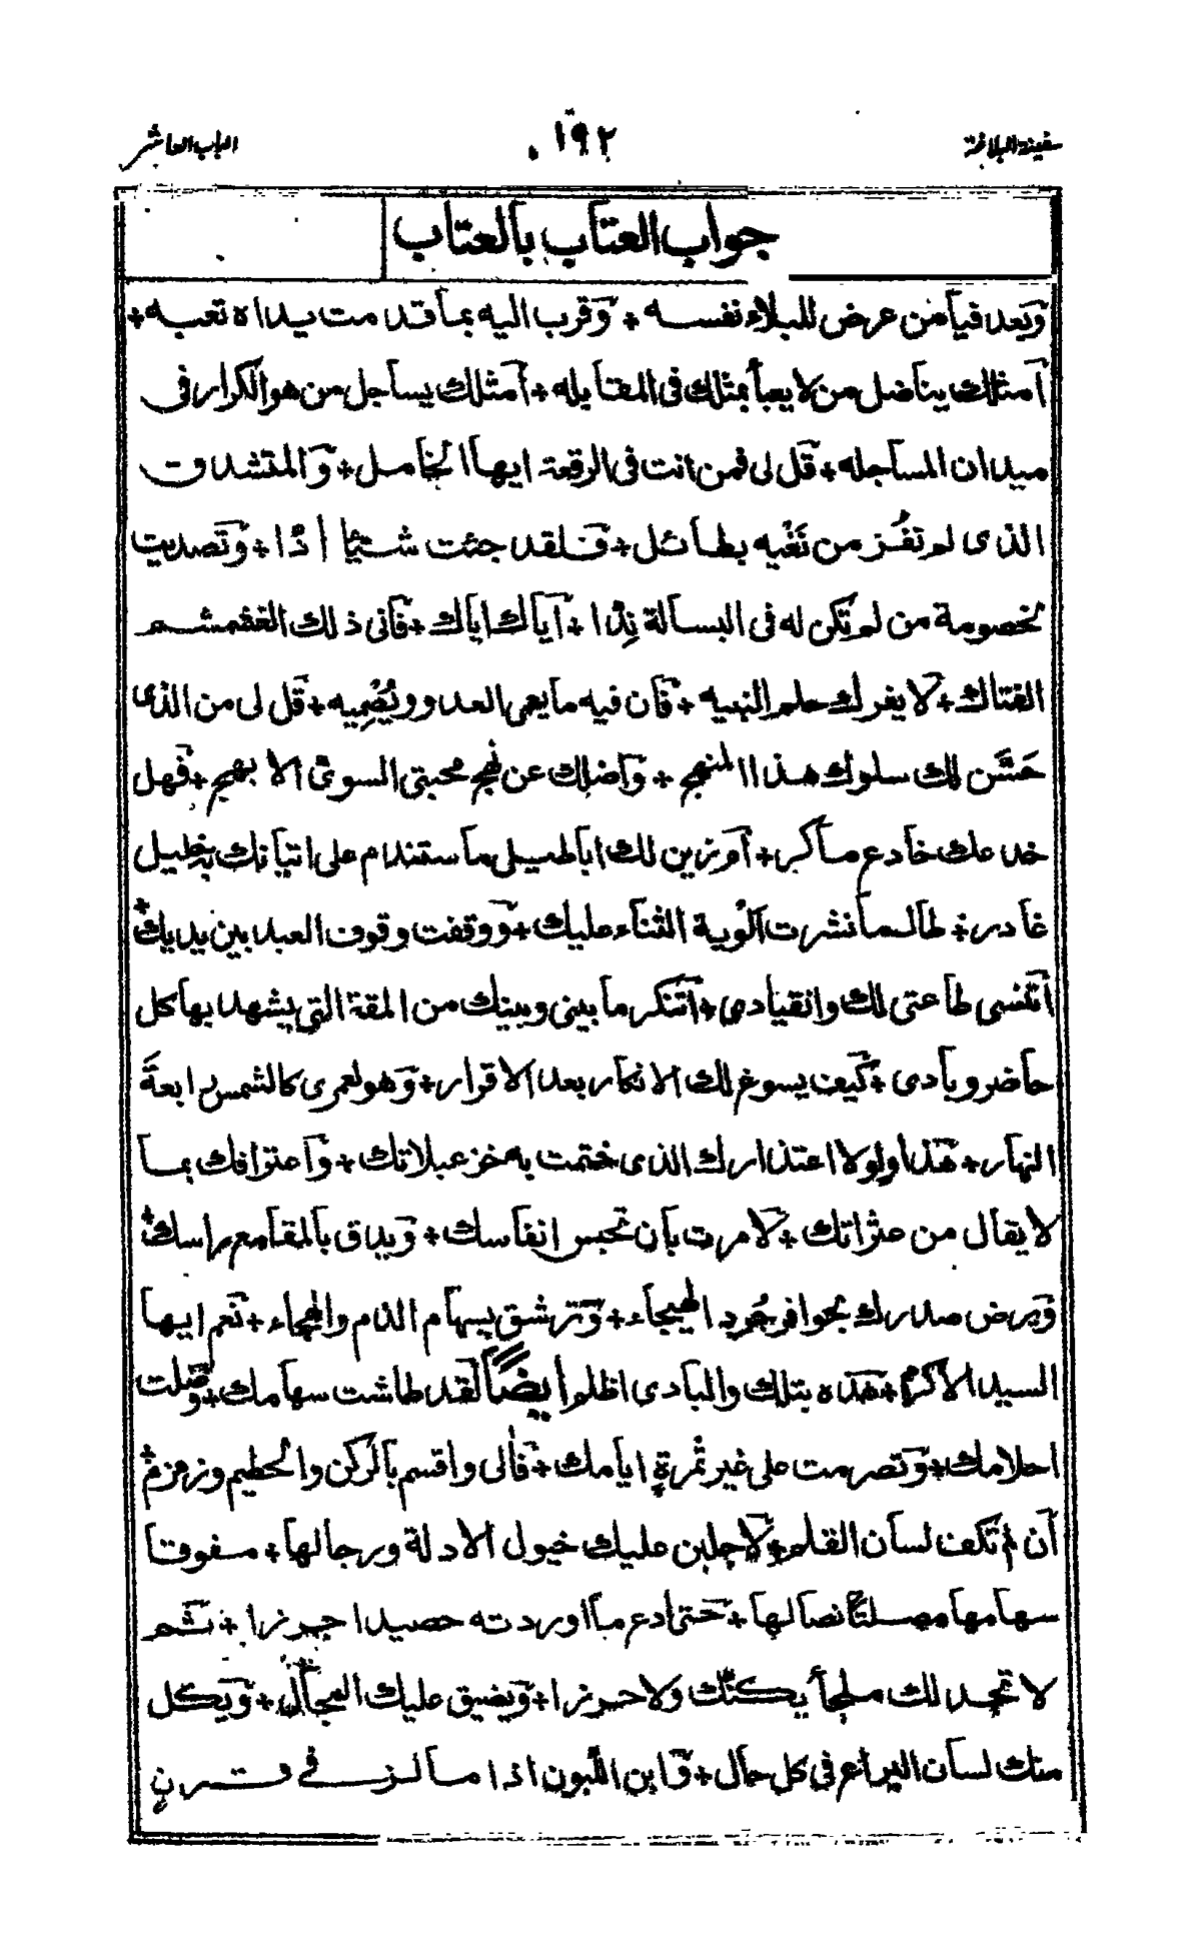 سفينة البلاغة
١٩٢
الباب العاشر
جواب العتاب بالعتاب
وبعد فيامن عرض للبلاء نفسه + وقرب اليه بما قدمت يداه تعبه +
أمثلك يناضل من لا يعبأ بمثلك فى المقابله + أمثلك يساجل من هو الكرار فى
ميدان المساجله + قل لى فمن انت فى الرقعة ايها الخامل + والمتشدق
الذى لم تفُز من نَغْيه بطائل + فلقد جئت شيئا أدًّا + وتصديت
لخصومة من لم تكن له فى البسالة نِدًّا + اياك اياك + فانى ذلك الغشمشم
الفتاك + لا يغرك حلم النبيه + فان فيه ما يعمى العدو ويُصْمِيه + قل لى من الذى
حَسَّن لك سلوك هذا المنهج + واضلك عن نهج محبتى السوىّ الابهج + فهل
خدعك خادع ماكر + أم زين لك اباطيلى ما ستندام على اتيانك به خليل
غادر + طالما نشرت ألْوية الثناء عليك + ووقفت وقوف العبد بين يديك +
أتنسى طاعتى لك وانقيادى + أتنكر ما بينى وبينك من المقة التى يشهد بها كل
حاضر وبادى + كيف يسوغ لك الانكار بعد الاقرار + وهو لعمرى كالشمس رابعةَ
النهار + هذا ولولا اعتذارك الذى ختمت به خزعبلاتك + واعترافك بما
لا يقال من عثراتك + لامرت بان تحبس انفاسك + ويدق بالمقامع راسك +
ويرض صدرك بحوافر جُردِ الهيجاء + وترشق بسهام الذم والهجاء + نعم ايها
السيد الاكرم + هذه بتلك والبادى اظلم أيضًا لقد طاشت سهامك + وضلت
احلامك + وتصرمت على غير ثمرةٍ ايامك + فالى واقسم بالركن والحطيم وزمزم +
أن لم تكف لسان القلم + لاجلبن عليك خيول الادلة ورجالها + مفوقا
سهامها مصلتًا نصالها + حتى ادع ما اوردته حصيدا جرزا + ثم
لا تجد لك ملجأ يكنّك ولا حرزا + ويضيق عليك المجال + ويكل
منك لسان اليراع فى كل حال + وابن اللبون اذا ما لز فى قرن